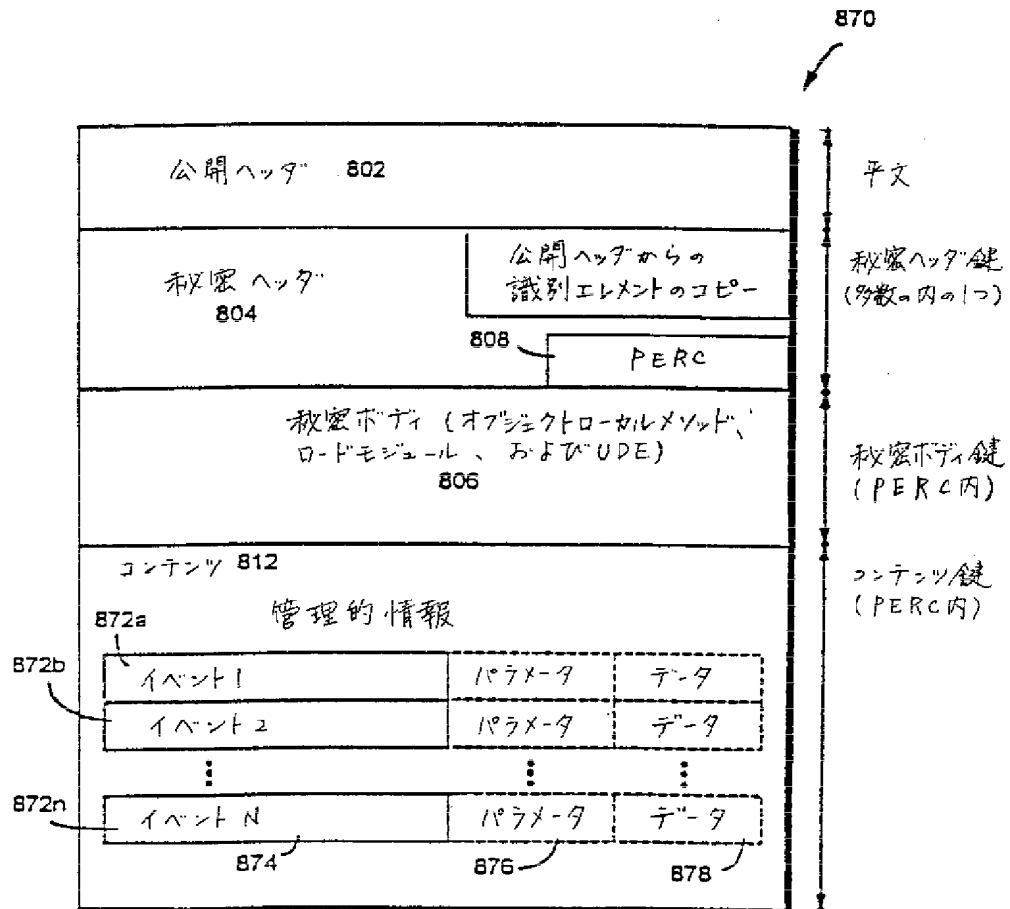 870
公開ヘッダ 802
平文
秘密ヘッダ
804
公開ヘッダからの
識別エレメントのコピー
秘密ヘッダ鍵
(多数の内の1つ)
808
PERC
秘密ボディ (オブジェクトローカルメソッド、
ロードモジュール、およびUDE)
806
秘密ボディ鍵
(PERC内)
コンテンツ 812
コンテンツ鍵
(PERC内)
管理的情報
872a
872b
イベント1 パラメータ データ
イベント2 パラメータ データ
872n
イベントN パラメータ データ
874
876
878